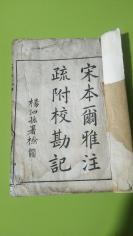 宋本爾雅注
疏附校勘記
楊泗孫署檢